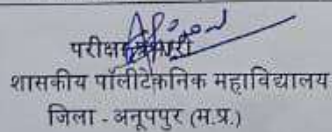 परीक्षा प्रभारी
शासकीय पॉलीटेकनिक महाविद्यालय
जिला - अनूपपुर (म.प्र.)